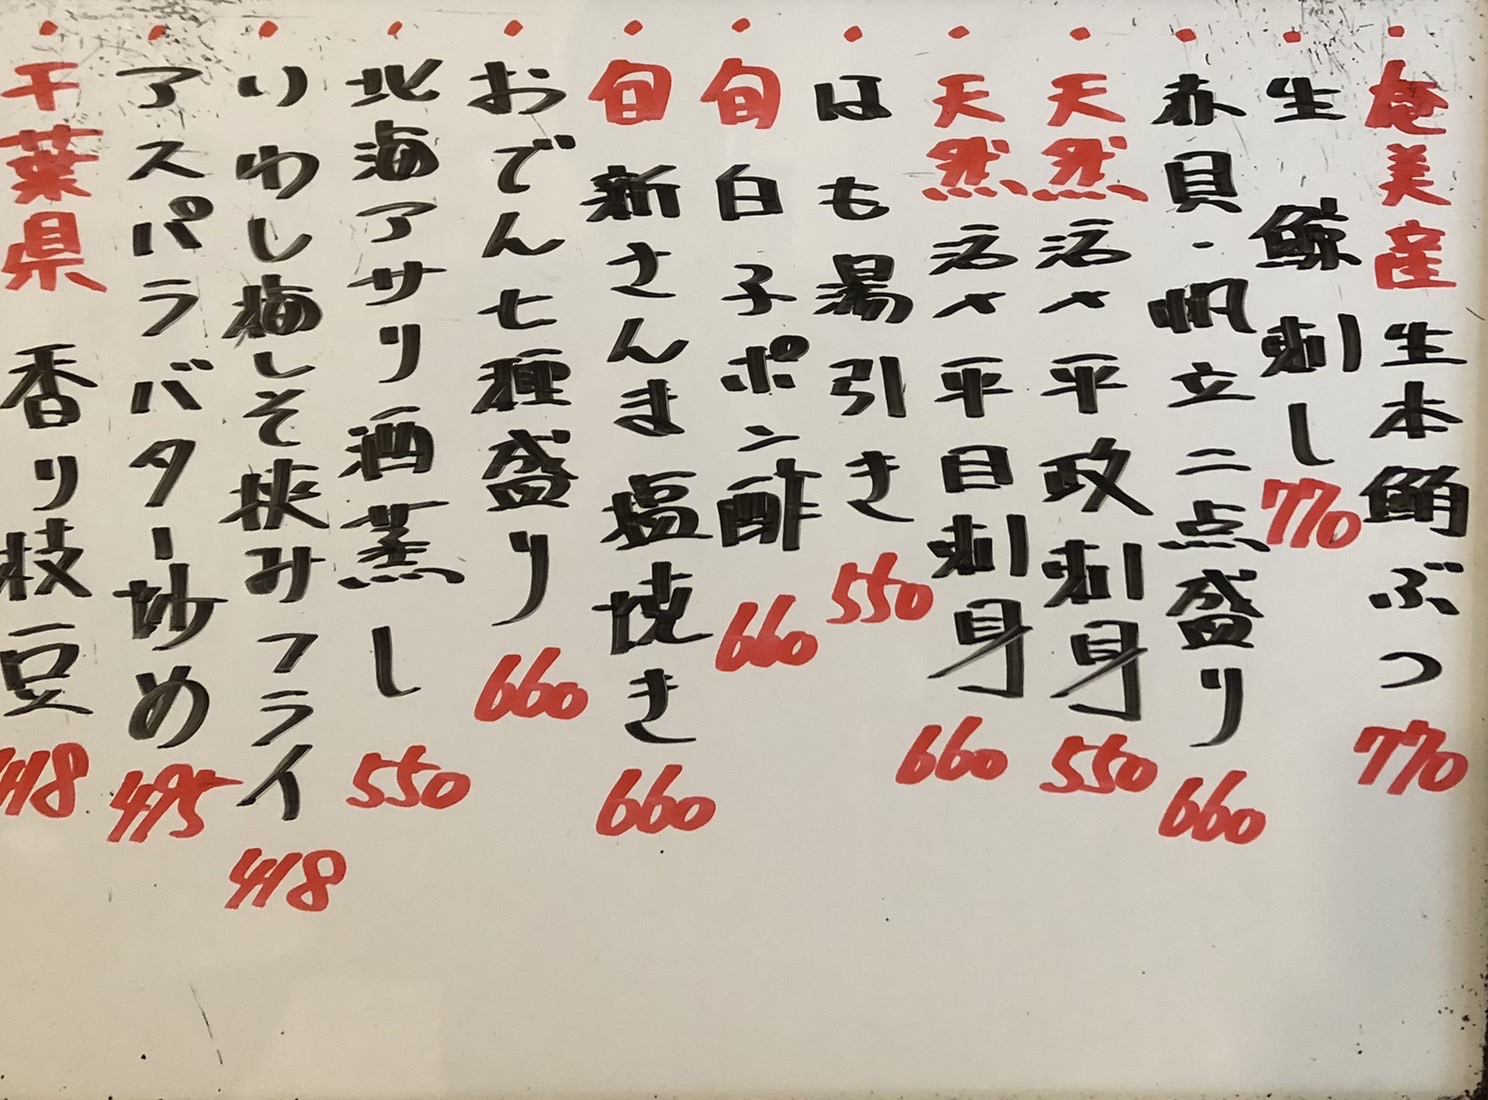 ・奄美産 生本鮪ぶつ 770
・生 鯨刺し 770
・赤貝・帆立 二点盛り 660
・天然 活〆 平政刺身 550
・天然 活〆 平目刺身 660
・はも湯引き 550
・旬 白子ポン酢 660
・旬 新さんま 塩焼き 660
・おでん 七種盛り 660
・北海アサリ 酒蒸し 550
・いわし梅しそ挟みフライ 418
・アスパラバター炒め 495
・千葉県 香り枝豆 418